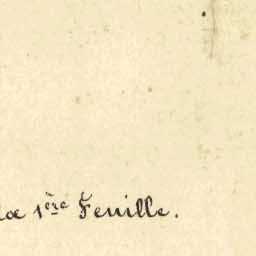 la 1ère Feuille.